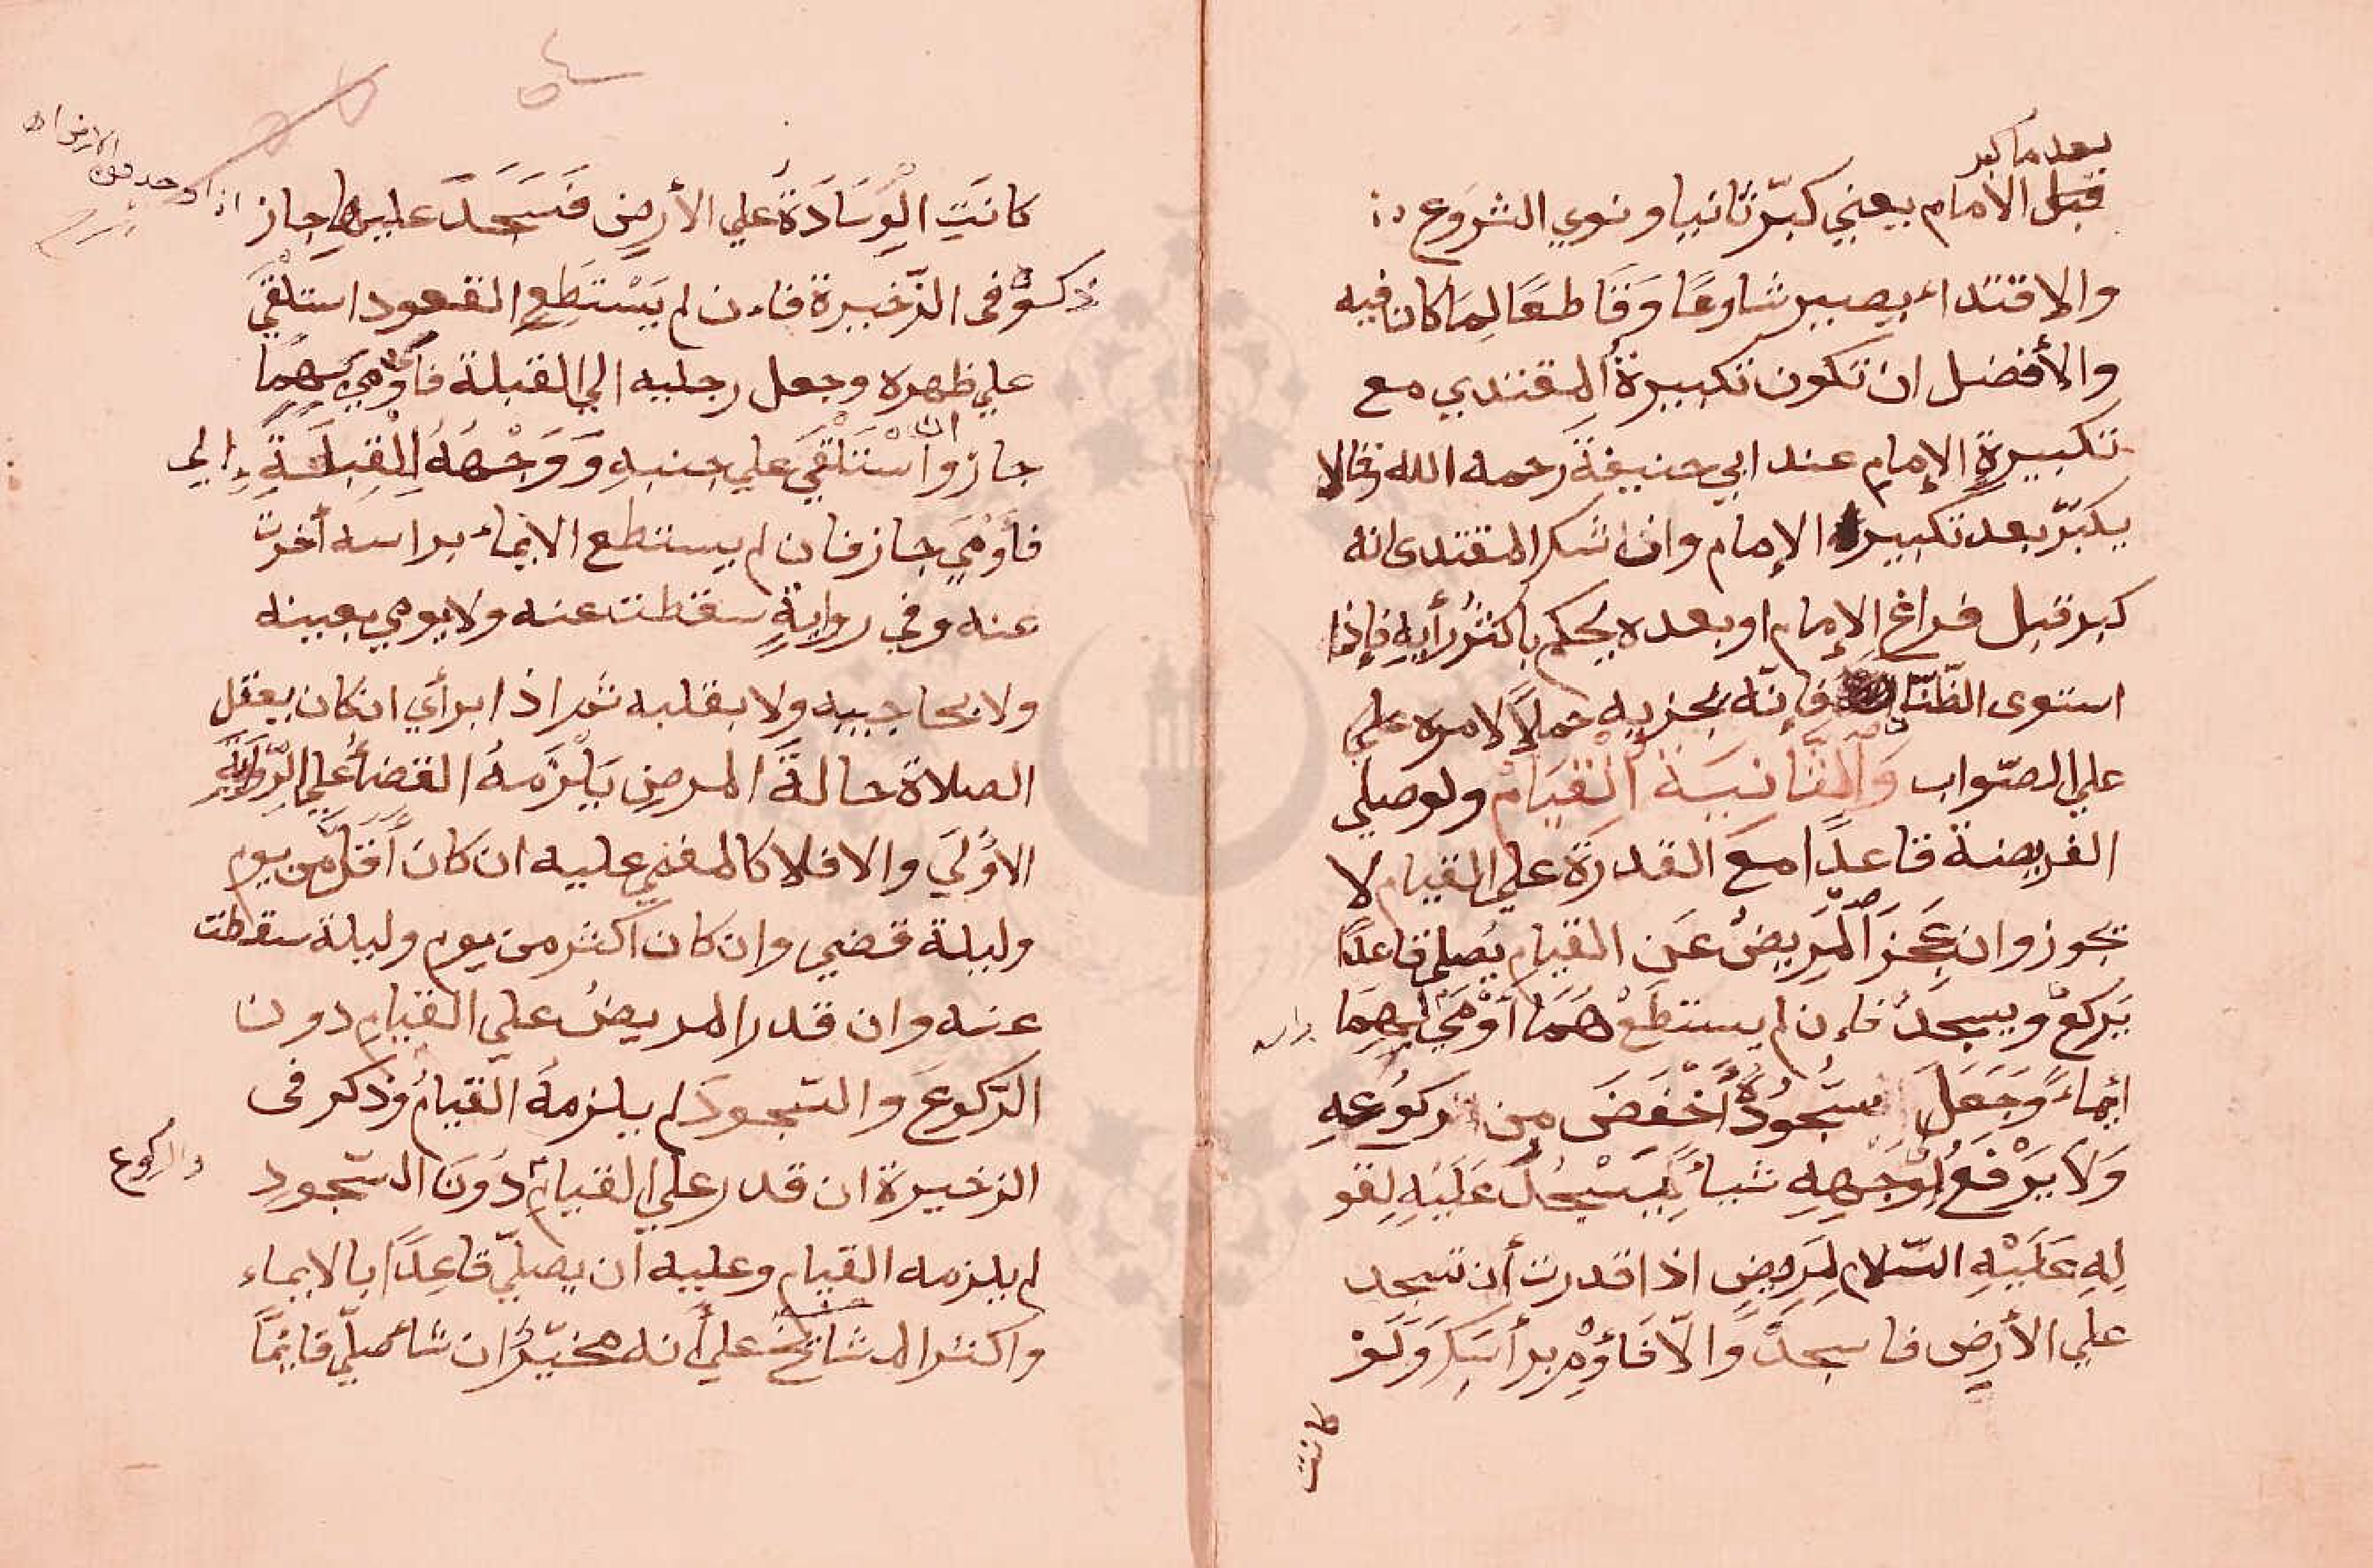 بعد ما كبر
قبل الامام يعني كبّر ثانيا ونوي الشروع
والاقتداء يصير شارعًا وَقَاطعًا لِمَا كان فيه
والأفضل ان تكون تكبيرةُ المقتدي مع
تكبيرةِ الإمامِ عند ابي حنيفةَ رحمه الله وقالا
يكبّرُ بعد تكبيرة الإمام وان شك المقتدى انه
كبر قبل فراغِ الإمام او بعده يحكم باكثر رأيهِ فإذا
استوى الظنّان فإنّه يجزيه حملاً لامره علي
علي الصّواب وَالثّانيَة القيَام ولو صلي
الفريضة قاعدًا معَ القدرَةِ علي القيام لا
تجوز وان عَجَزَ المَرِيضُ عَن القيام يُصلي قاعدًا
يَركعُ ويسجدُ فإن لم يستطعْ هُمَا أوْمَي بِهِمَا
براسه
ايماءً وَجَعَلَ سُّجُودَهُ أخْفَضَ مِن رَكوُعهِ
وَلَا يَرْفَعُ لِوَجْهِهِ شيأً يَسْجُدُ عَلَيْهِ لِقَو
لِهِ عَلَيْهِ السّلام لِمَرِيضٍ اذا قدرت أن تسجد
علي الأرضِ فاسجدْ وَالّا فَأَوْمِ برأسِكَ وَلَوْ
كانت
كانَتِ الوِسَادَةُ علي الأرضِ فَسَجَدَ عليها جاز
اذا وجد
ذكرَهُ فى الذّخيرة فإن لم يَسْتَطِعِ القعود استلْقَي
علي ظهره وجعل رجليه الي القبلة فأَوْمي بِهِمَا
جاز وان اسْتَلْقَي علي جنبهِ وَوَجْهُهُ الي القِبْلَةِ
فأَوْمَي جاز فان لم يستطع الايماء براسه أخرت
عنه وفي روايةٍ سقطت عنه ولا يومي بعينه
ولا بحاجبيه ولا بقلبه ثم اذا برأي ان كان يعقل
الصلاة حالةَ المرضِ يَلْزَمهُ القضأُ علي الرِّوَايَةِ
الاُولَي والا فلا كالمغمي عليه ان كان أقلّ من يوم
وليلة قضي وان كان اكثر من يوم وليلة سقطت
عنه وان قدر المريضُ علي القيامِ دون
الرّكوعَ والسّجودَ لم يلزمهُ القيامُ وذكر فى
الزخيرة ان قدر علي القيامِ دُونَ السّجودِ
والركوع
لم يلزمه القيام وعليه أن يصلّي قاعِدًا بالايماء
واكثر المشايخ علي أنه مخيّرٌ ان شأ صلّي قايمًا